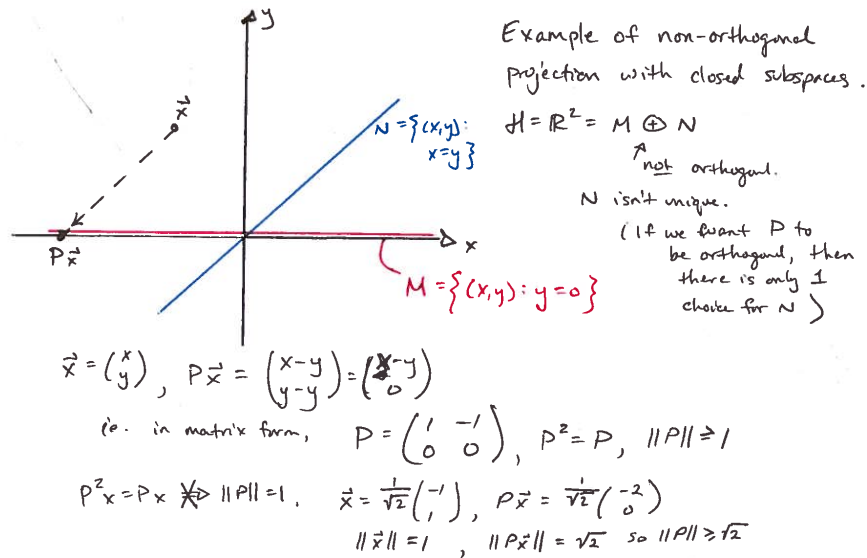 y
Example of non-orthogonal
projection with closed subspaces.
x⃗
N = {(x,y):
x=y}
H = ℝ² = M ⊕ N
not orthogonal.
N isn't unique.
(If we want P to
be orthogonal, then
there is only 1
choice for N)
x
Px⃗
M = {(x,y): y=0}
x⃗ = (x y), Px⃗ = (x-y y-y) = (x-y 0)
i.e. in matrix form, P = (1 -1 0 0), P² = P, ||P|| ≥ 1
P²x = Px ⇏ ||P|| = 1. x⃗ = 1/√2 (-1 1), Px⃗ = 1/√2 (-2 0)
||x⃗|| = 1, ||Px⃗|| = √2 so ||P|| ≥ √2